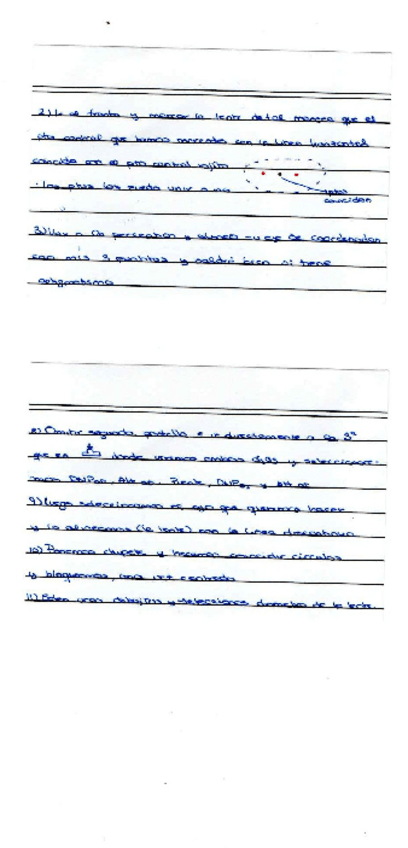 2) Ir al frontofo y marcar la lente de tal manera que el
pto central que hemos marcado con la línea horizontal
coincida con el pto central rojito
· Los ptos los puedo unir o no
ptos
coinciden
3) Llevo a la perseation y alineo su eje de coordenadas
con mis 3 puntitos y saldrá bien si tiene
astigmatismo
8) Omitir segunda pantalla e ir directamente a la 3ª
que es donde veremos ambos ojos y seleccionare-
mos DNPod, Alt od, Puente, DNPoi y Alt oi
9) Luego seleccionamos el ojo que queramos hacer
y lo alineamos (la lente) con la línea discontinua
10) Ponemos chupete y hacemos coincidir círculos
y bloqueamos, una vez centrado
11) Poden
y selecciones diámetro de la lente.